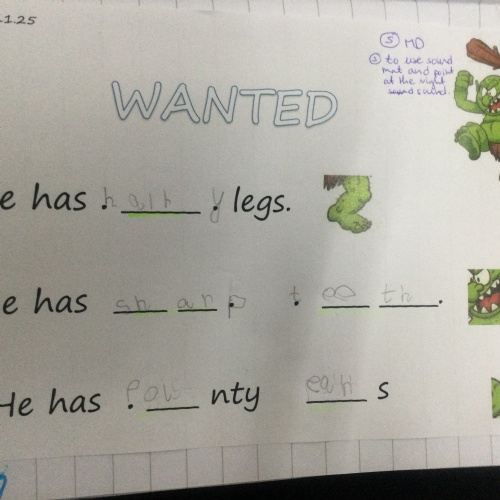 1.25
S MD
S to use sound
mat and point
at the right
sound.
WANTED
e has hair y legs.
e has sh ar p t ee th.
He has nty ear s